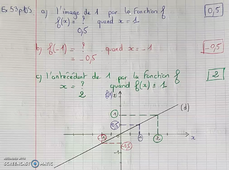 Ex 33 p83
a) l'image de 1 par la fonction f
f(x) = ? quand x = 1.
0,5
0,5
b) f(-1) = ? quand x = -1
= -0,5
-0,5
c) l'antécédent de 1 par la fonction f
x = ? quand f(x) = 1
2
2
(d)
x